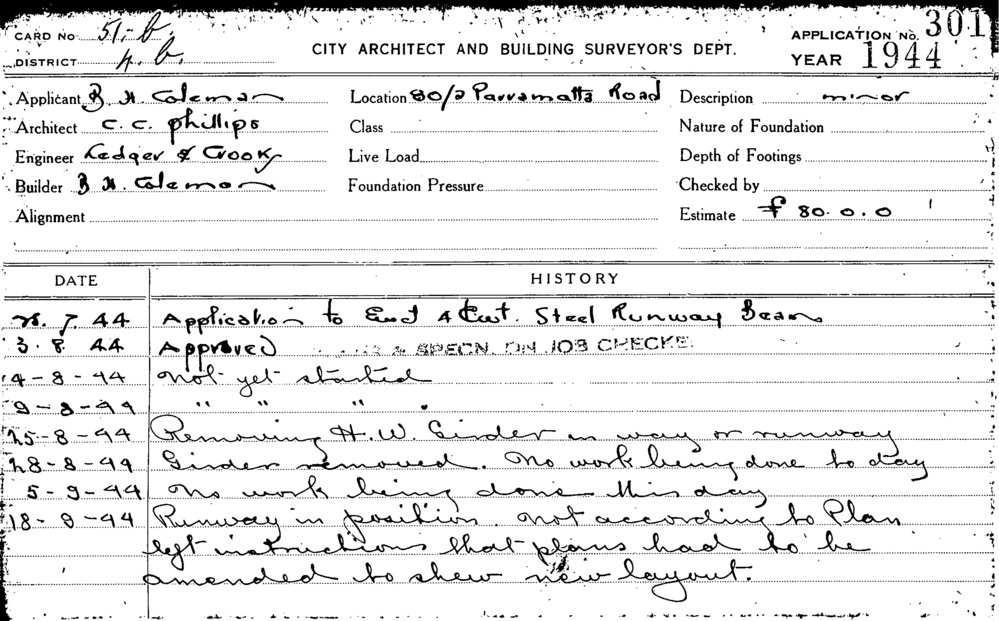 CARD NO 51-b.
DISTRICT h.b.
CITY ARCHITECT AND BUILDING SURVEYOR'S DEPT.
APPLICATION No. 301
YEAR 1944
Applicant B H. Coleman
Location 80/2 Parramatta Road
Description minor
Architect C. C. Phillips
Class
Nature of Foundation
Engineer Ledger & Crooks
Live Load
Depth of Footings
Builder B H. Coleman
Foundation Pressure
Checked by
Alignment
Estimate £ 80.0.0
DATE HISTORY
7. 44 Application to 4 Cwt. Steel Runway Beam
3. 8. 44 Approved & SPECN. ON JOB CHECKE
4-8-44 Not yet started
9-8-44 " " "
25-8-44 Removing H.W. Girder in way or runway
28-8-44 Girder removed. No work being done to day
5-9-44 No work being done this day
18-9-44 Runway in position. not according to Plan
left instructions that plans had to be
amended to shew new layout.